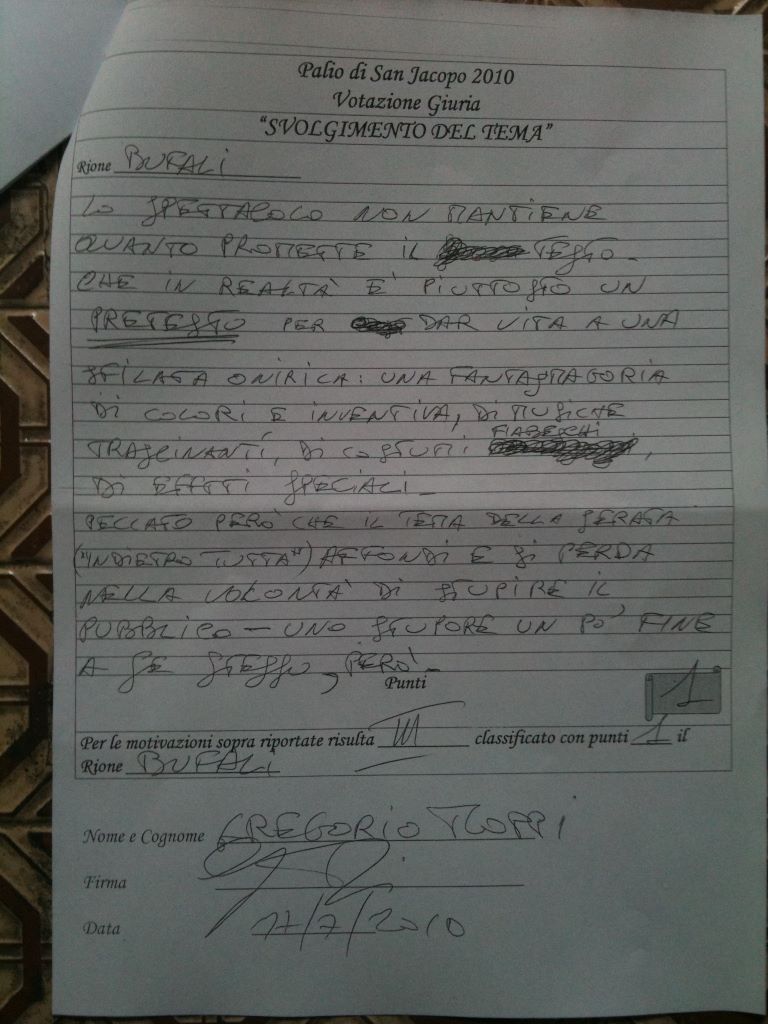 Palio di San Jacopo 2010
Votazione Giuria
"SVOLGIMENTO DEL TEMA"
Rione BUFALI
LO SPETTACOLO NON MANTIENE
QUANTO PROMETTE IL TESTO -
CHE IN REALTÀ E' PIUTTOSTO UN
PRETESTO PER DAR VITA A UNA
SFILATA ONIRICA: UNA FANTASMAGORIA
DI COLORI E INVENTIVA, DI MUSICHE
TRASCINANTI, DI COSTUMI FIABESCHI,
DI EFFETTI SPECIALI -
PECCATO PERÒ CHE IL TEMA DELLA SERATA
("INDIETRO TUTTA") AFFONDI E SI PERDA
NELLA VOLONTÀ DI STUPIRE IL
PUBBLICO - UNO STUPORE UN PO' FINE
A SE STESSO, PERÒ -
Punti 1
Per le motivazioni sopra riportate risulta III classificato con punti 1 il
Rione BUFALI
Nome e Cognome GREGORIO MOPPI
Firma
Data 17/7/2010